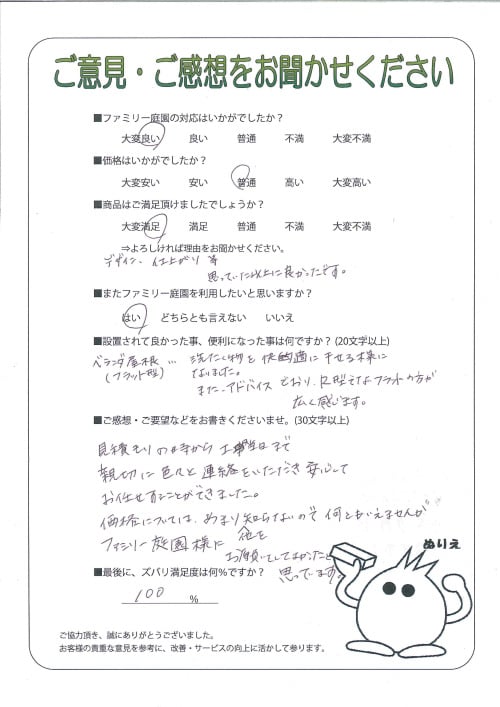 ご意見・ご感想をお聞かせください
■ファミリー庭園の対応はいかがでしたか？
大変良い 良い 普通 不満 大変不満
■価格はいかがでしたか？
大変安い 安い 普通 高い 大変高い
■商品はご満足頂けましたでしょうか？
大変満足 満足 普通 不満 大変不満
⇒よろしければ理由をお聞かせください。
デザイン、仕上がり 等
思っていた以上に良かったです。
■またファミリー庭園を利用したいと思いますか？
はい どちらとも言えない いいえ
■設置されて良かった事、便利になった事は何ですか？ (20文字以上)
ベランダ屋根 … 洗たく物を快適に干せる様に
(フラット型) なりました。
また、アドバイスどおり、R型よりフラットの方が
広く感じます。
■ご感想・ご要望などをお書きくださいませ。(30文字以上)
見積もりの時から工事当日まで
親切に色々と連絡をいただき安心して
お任せすることができました。
価格については、あまり知らないので何ともいえませんが
ファミリー庭園様に
お願いしてよかったと
思っています。
■最後に、ズバリ満足度は何％ですか？
100 %
ぬりえ
ご協力頂き、誠にありがとうございました。
お客様の貴重な意見を参考に、改善・サービスの向上に活かして参ります。